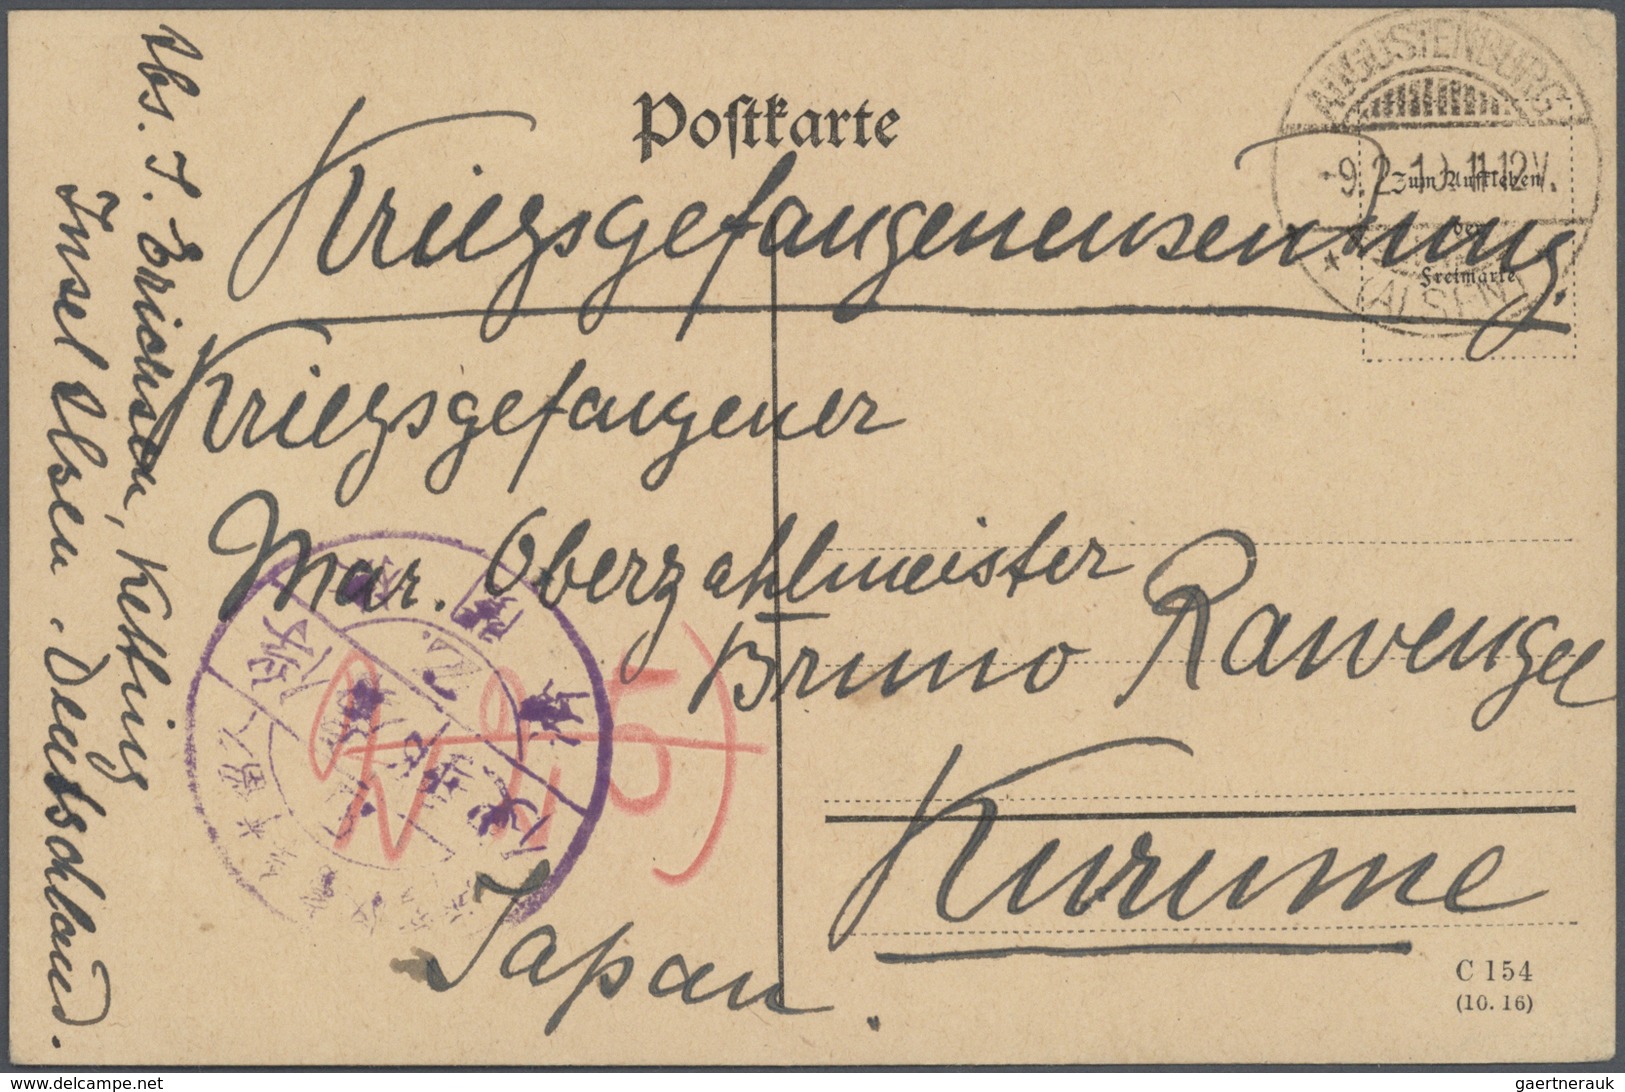 Postkarte
AUGUSTENBURG
(ALSEN)
Zum Aufkleben
der
Freimarke
Kriegsgefangenensendung.
Kriegsgefangener
Mar. Oberzahlmeister
Bruno Rawengel
Kurume
Japan.
Abs. J. Erichsen, Ketting
Insel Alsen. Deutschland.
C 154
(10. 16)
delcampe.net
gaertnerauk